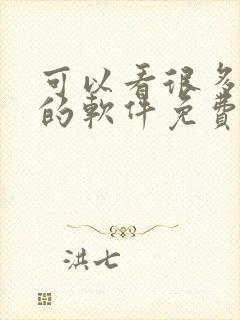 可以看很多
的軟件免費
洪七